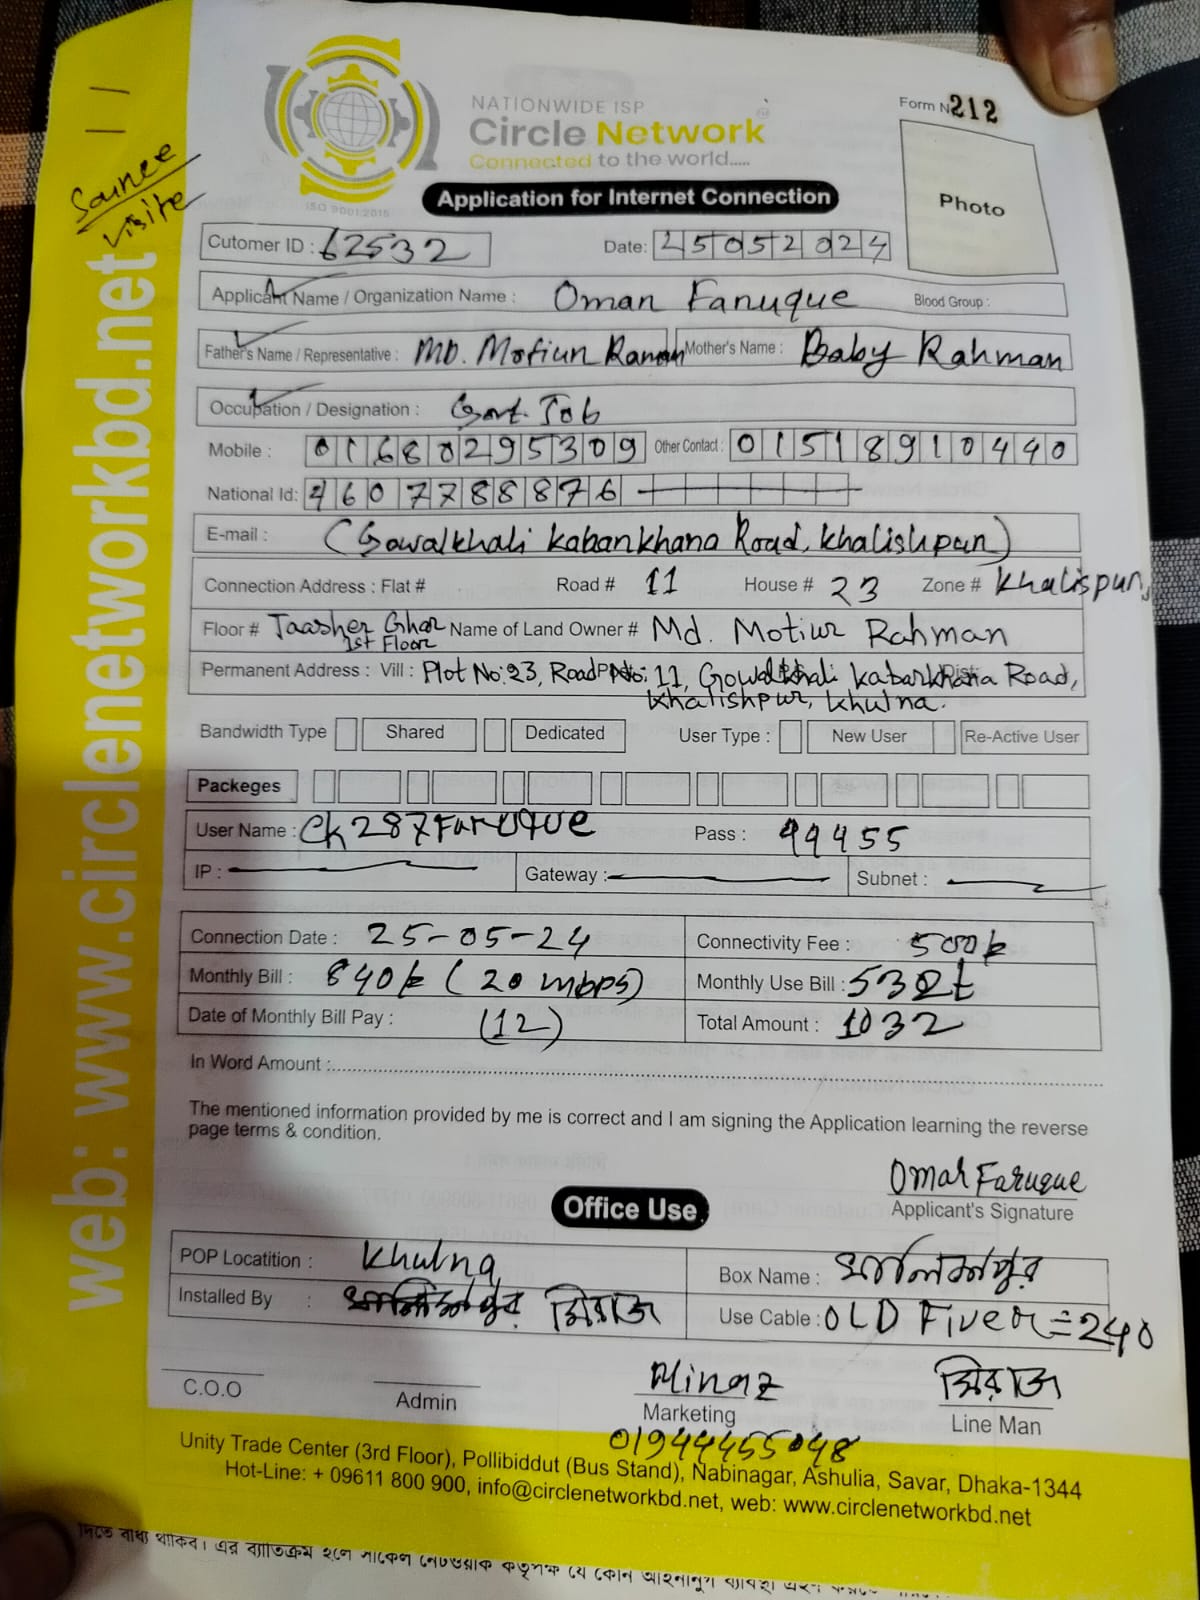 NATIONWIDE ISP
Circle Network
Connected to the world.....
ISO 9001:2015
Form N 212
Photo
Application for Internet Connection
Sounce visite
web: www.circlenetworkbd.net
Cutomer ID : 62532 Date: 25052024
Applicant Name / Organization Name : Oman Fanuque Blood Group :
Father's Name / Representative : MD. Motiun Raman Mother's Name : Baby Rahman
Occupation / Designation : Govt. Job
Mobile : 01680295309 Other Contact : 01518910440
National Id: 4607788876
E-mail : (Gowalkhali kabankhana Road, khalishpun)
Connection Address : Flat # Road # 11 House # 23 Zone # Khalispur,
Floor # Taasher Ghar 1st Floor Name of Land Owner # Md. Motiur Rahman
Permanent Address : Vill : Plot No: 23, Road No: 11, Gowalkhali kabarkhana Road,
khalishpur, khulna.
Bandwidth Type Shared Dedicated User Type : New User Re-Active User
Packeges
User Name : Ck287Faruque Pass : 99455
IP : Gateway : Subnet :
Connection Date : 25-05-24 Connectivity Fee : 500k
Monthly Bill : 840k (20 mbps) Monthly Use Bill : 532t
Date of Monthly Bill Pay : (12) Total Amount : 1032
In Word Amount :
The mentioned information provided by me is correct and I am signing the Application learning the reverse
page terms & condition.
Omar Faruque
Applicant's Signature
Office Use
POP Locatition : Khulna Box Name : খালিশপুর
Installed By : মিরাজ Use Cable : OLD Fiver = 240
C.O.O Admin Minaz Marketing মিরাজ Line Man
01944455048
Unity Trade Center (3rd Floor), Pollibiddut (Bus Stand), Nabinagar, Ashulia, Savar, Dhaka-1344
Hot-Line: + 09611 800 900, info@circlenetworkbd.net, web: www.circlenetworkbd.net
দিতে বাধ্য থাকিব। এর ব্যতিক্রম হলে সার্কেল নেটওয়ার্ক কর্তৃপক্ষ যে কোন আইনানুগ ব্যবস্থা